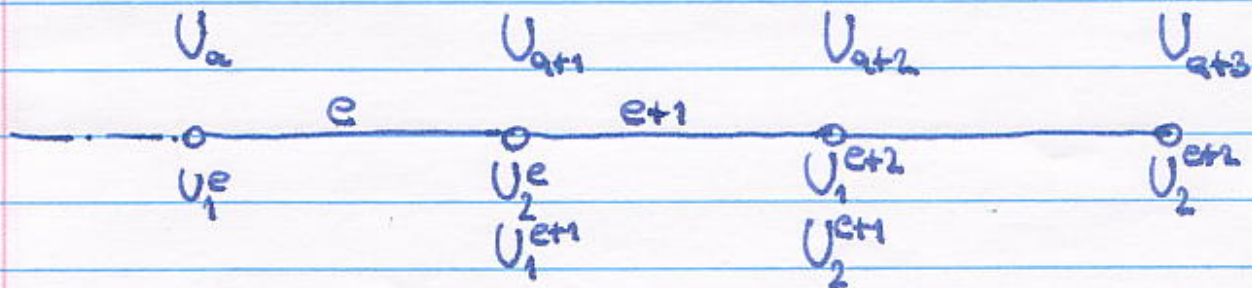 U_a U_{a+1} U_{a+2} U_{a+3}
e e+1
U_1^e U_2^e U_1^{e+2} U_2^{e+2}
U_1^{e+1} U_2^{e+1}